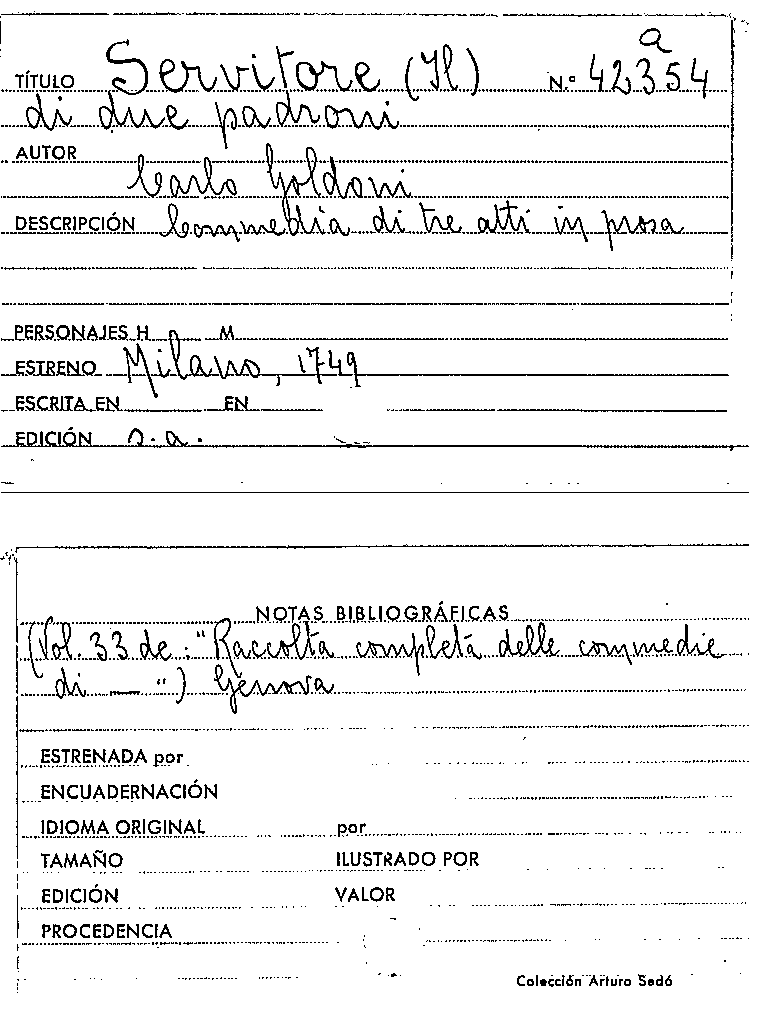 a
TÍTULO Servitore (Il) N.º 42354
di due padroni
AUTOR
Carlo Goldoni
DESCRIPCIÓN Commedia di tre atti in prosa
PERSONAJES H M
ESTRENO Milano, 1749
ESCRITA EN EN
EDICIÓN s.a.
NOTAS BIBLIOGRÁFICAS
(Vol. 33 de: "Raccolta completa delle commedie
di — ") Genova
ESTRENADA por
ENCUADERNACIÓN
IDIOMA ORIGINAL por
TAMAÑO ILUSTRADO POR
EDICIÓN VALOR
PROCEDENCIA
Colección Arturo Sedó